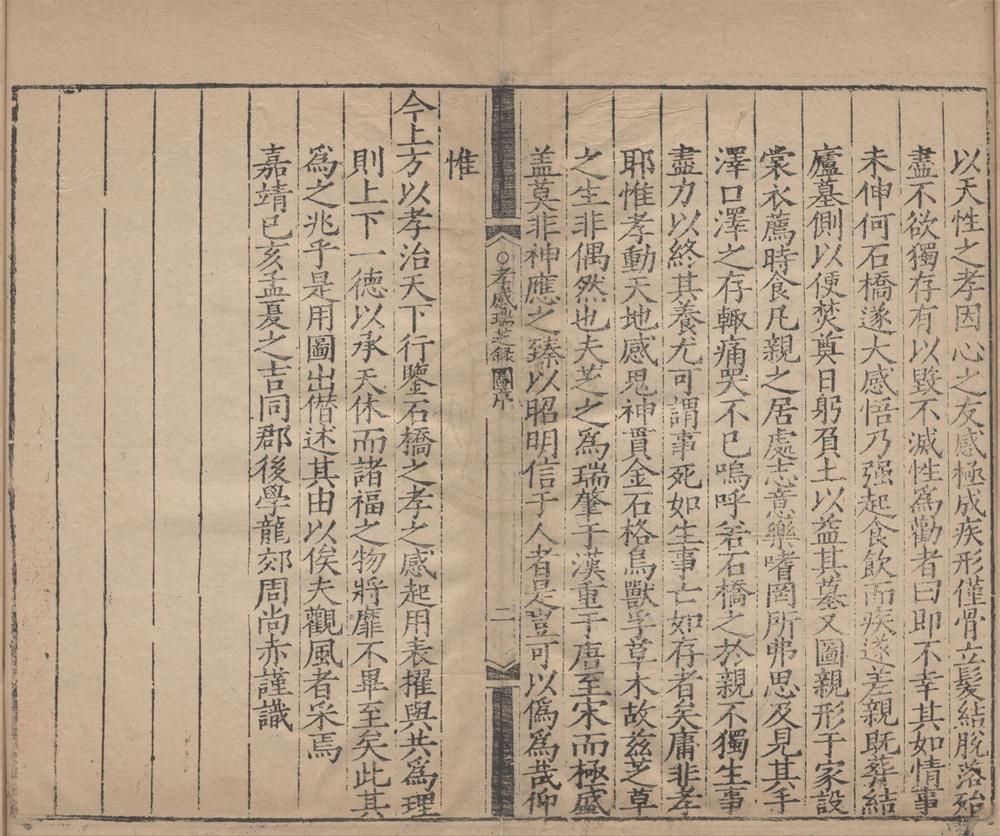 以天性之孝因心之友感極成疾形僅骨立髮結脫落殆
盡不欲獨存有以毀不滅性為勸者曰即不幸其如情事
未伸何石橋遂大感悟乃强起食飲而疾遂差親既葬結
廬墓側以便焚奠日躬負土以益其墓又圖親形于家設
裳衣薦時食凡親之居處志意樂嗜罔所弗思及見其手
澤口澤之存輙痛哭不已嗚呼若石橋之於親不獨生事
盡力以終其養尤可謂事死如生事亡如存者矣庸非孝
耶惟孝動天地感鬼神貫金石格鳥獸孚草木故茲芝草
之生非偶然也夫芝之為瑞肇于漢重于唐至宋而極盛
盖莫非神應之臻以昭明信于人者是豈可以偽為哉仰
○孝感瑞芝錄 圖序 二
惟
今上方以孝治天下行鑒石橋之孝之感起用表擢與共為理
則上下一德以承天休而諸福之物將靡不畢至矣此其
為之兆乎是用圖出僣述其由以俟夫觀風者采焉
嘉靖已亥孟夏之吉同郡後學龍郊周尚赤謹識